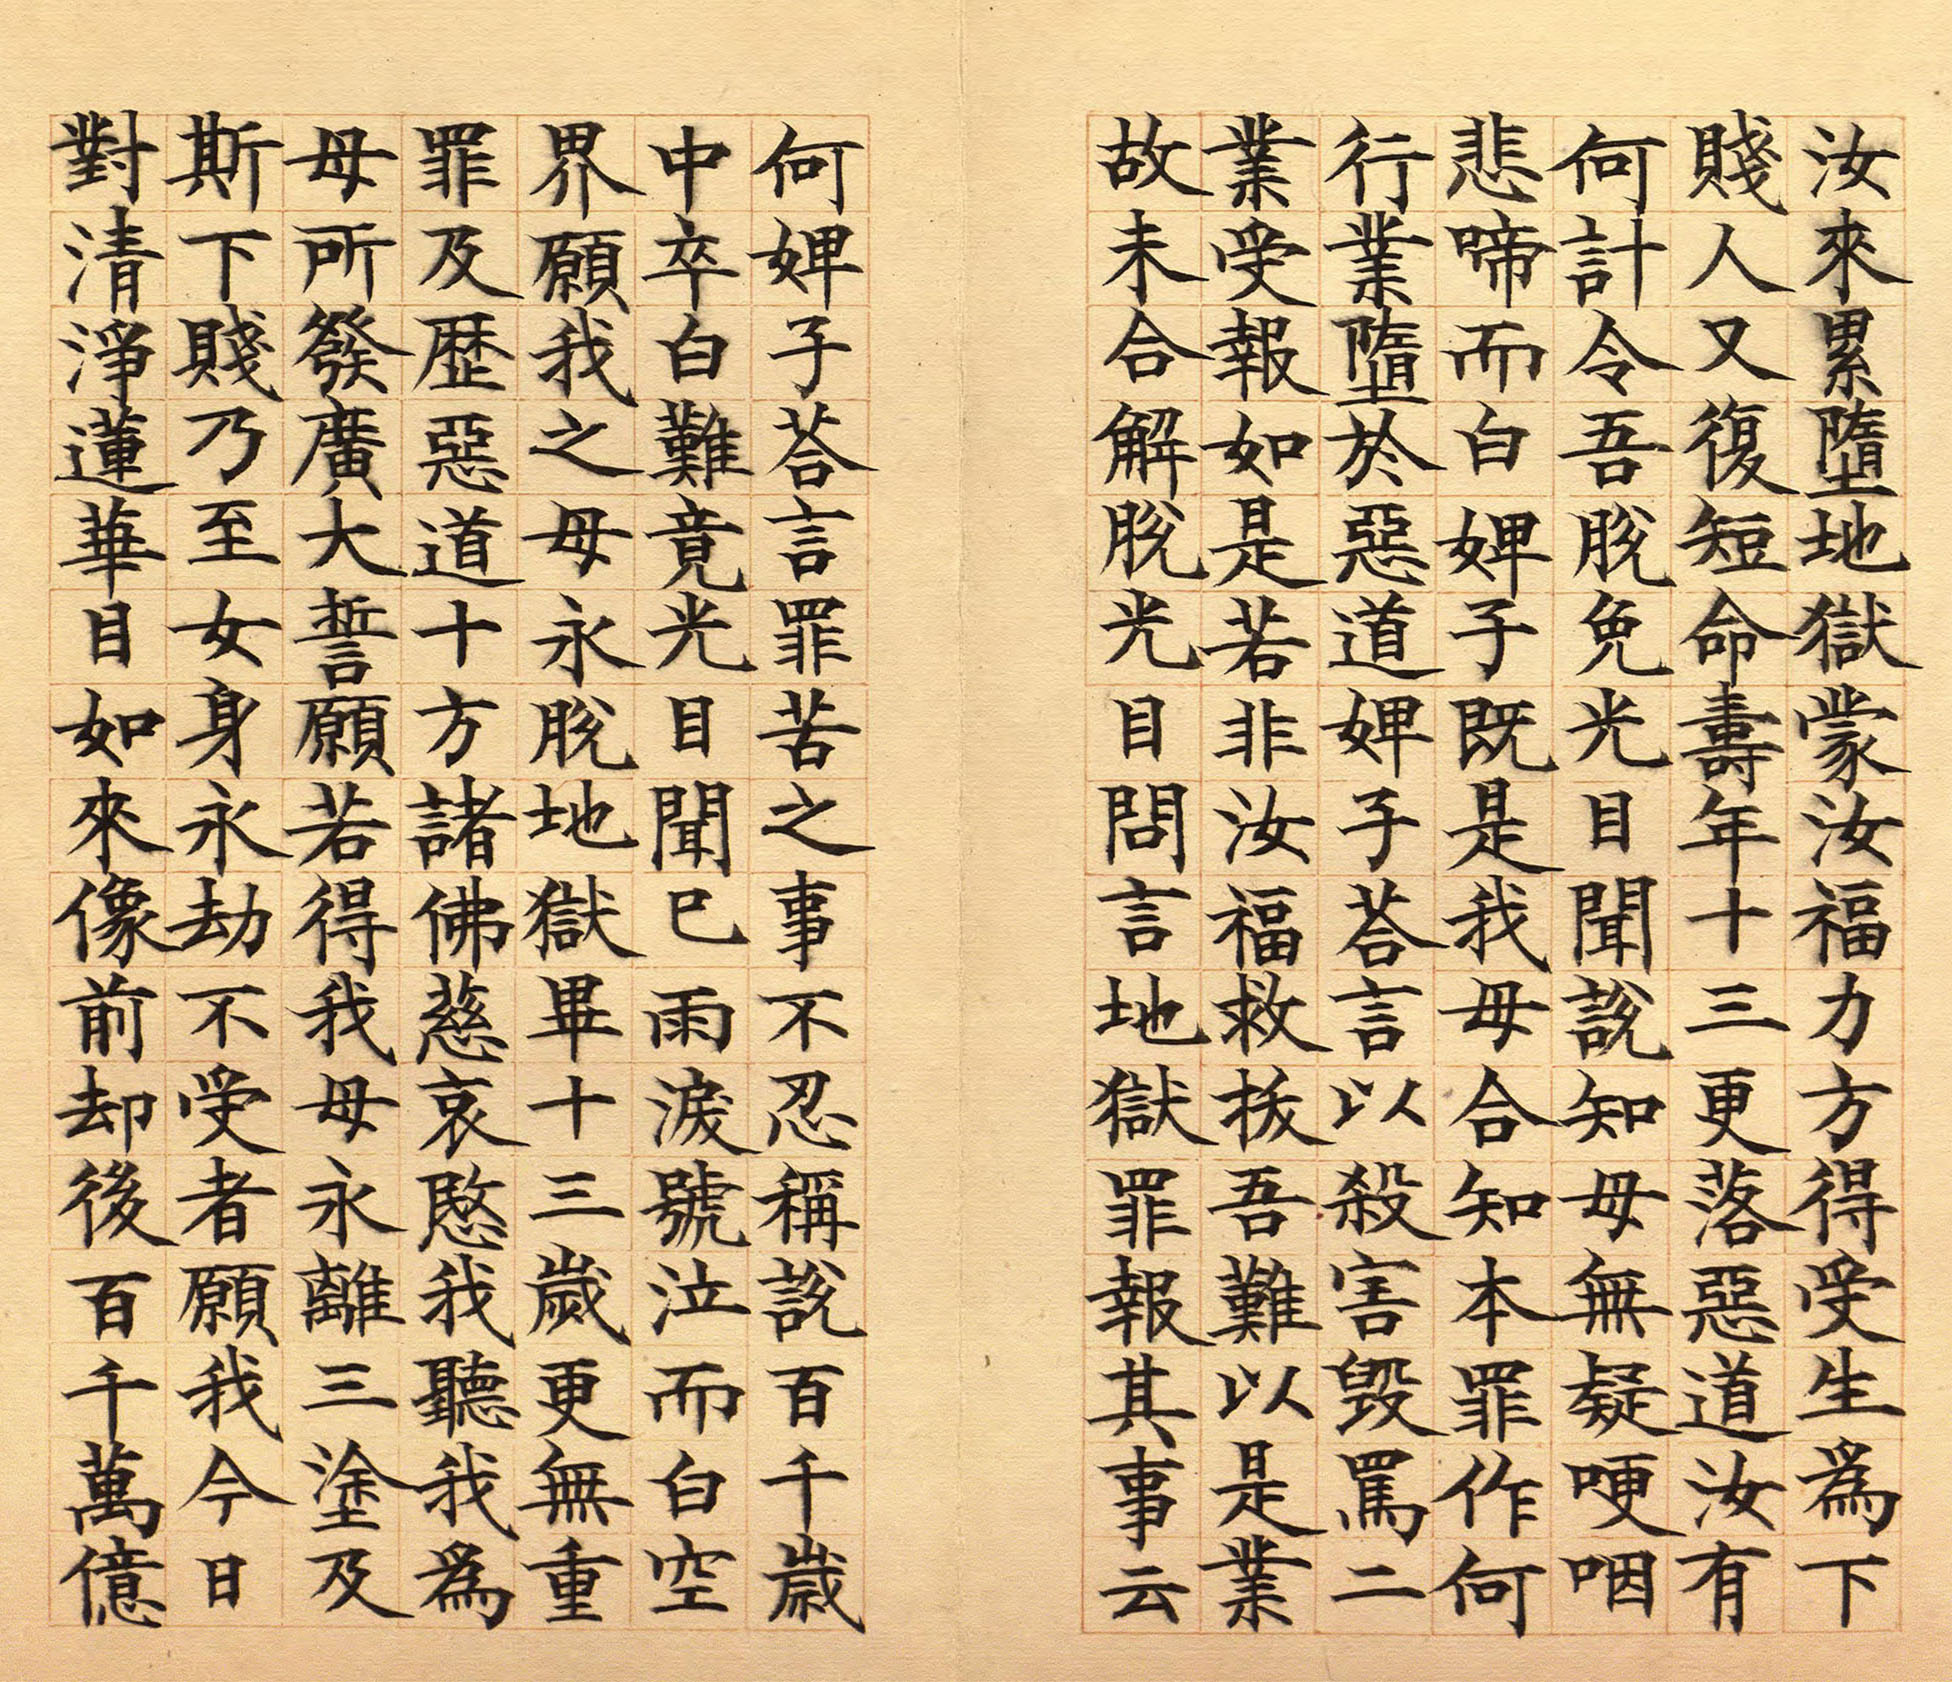 汝來累墮地獄蒙汝福力方得受生為下
賤人又復短命壽年十三更落惡道汝有
何計令吾脫免光目聞說知母無疑哽咽
悲啼而白婢子既是我母合知本罪作何
行業墮於惡道婢子荅言以殺害毀罵二
業受報如是若非汝福救拔吾難以是業
故未合解脫光目問言地獄罪報其事云
何婢子荅言罪苦之事不忍稱說百千歲
中卒白難竟光目聞已雨淚號泣而白空
界願我之母永脫地獄畢十三歲更無重
罪及歷惡道十方諸佛慈哀愍我聽我為
母所發廣大誓願若得我母永離三塗及
斯下賤乃至女身永劫不受者願我今日
對清淨蓮華目如來像前却後百千萬億